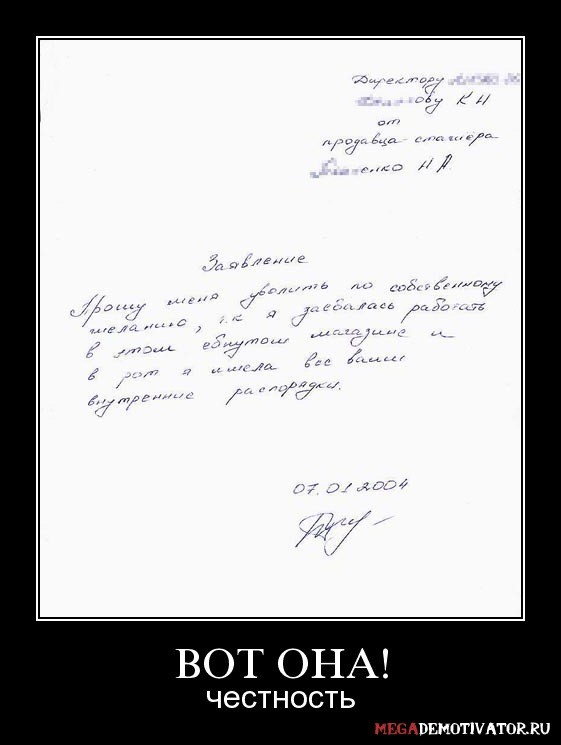 Директору
ову К Н
от
продавца стажера
енко Н А.
Заявление
Прошу меня уволить по собственному
желанию, т.к я заебалась работать
в этом ебнутом магазине и
в рот я имела все ваши
внутренние распорядки.
07.01 2004
ВОТ ОНА!
честность
MEGADEMOTIVATOR.RU